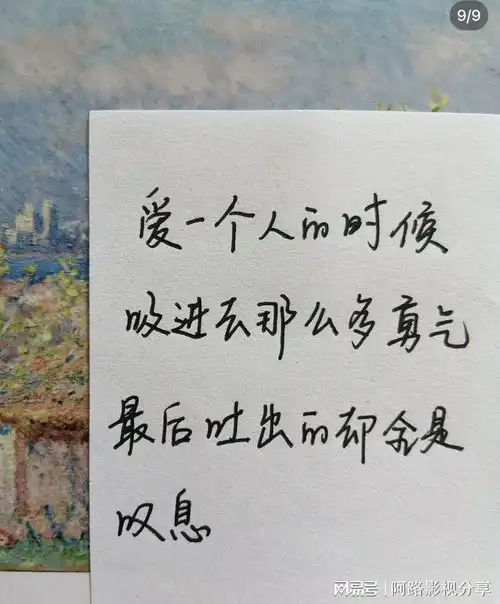 9/9
爱一个人的时候
吸进去那么多勇气
最后吐出的却全是
叹息
网易号 | 阿路影视分享